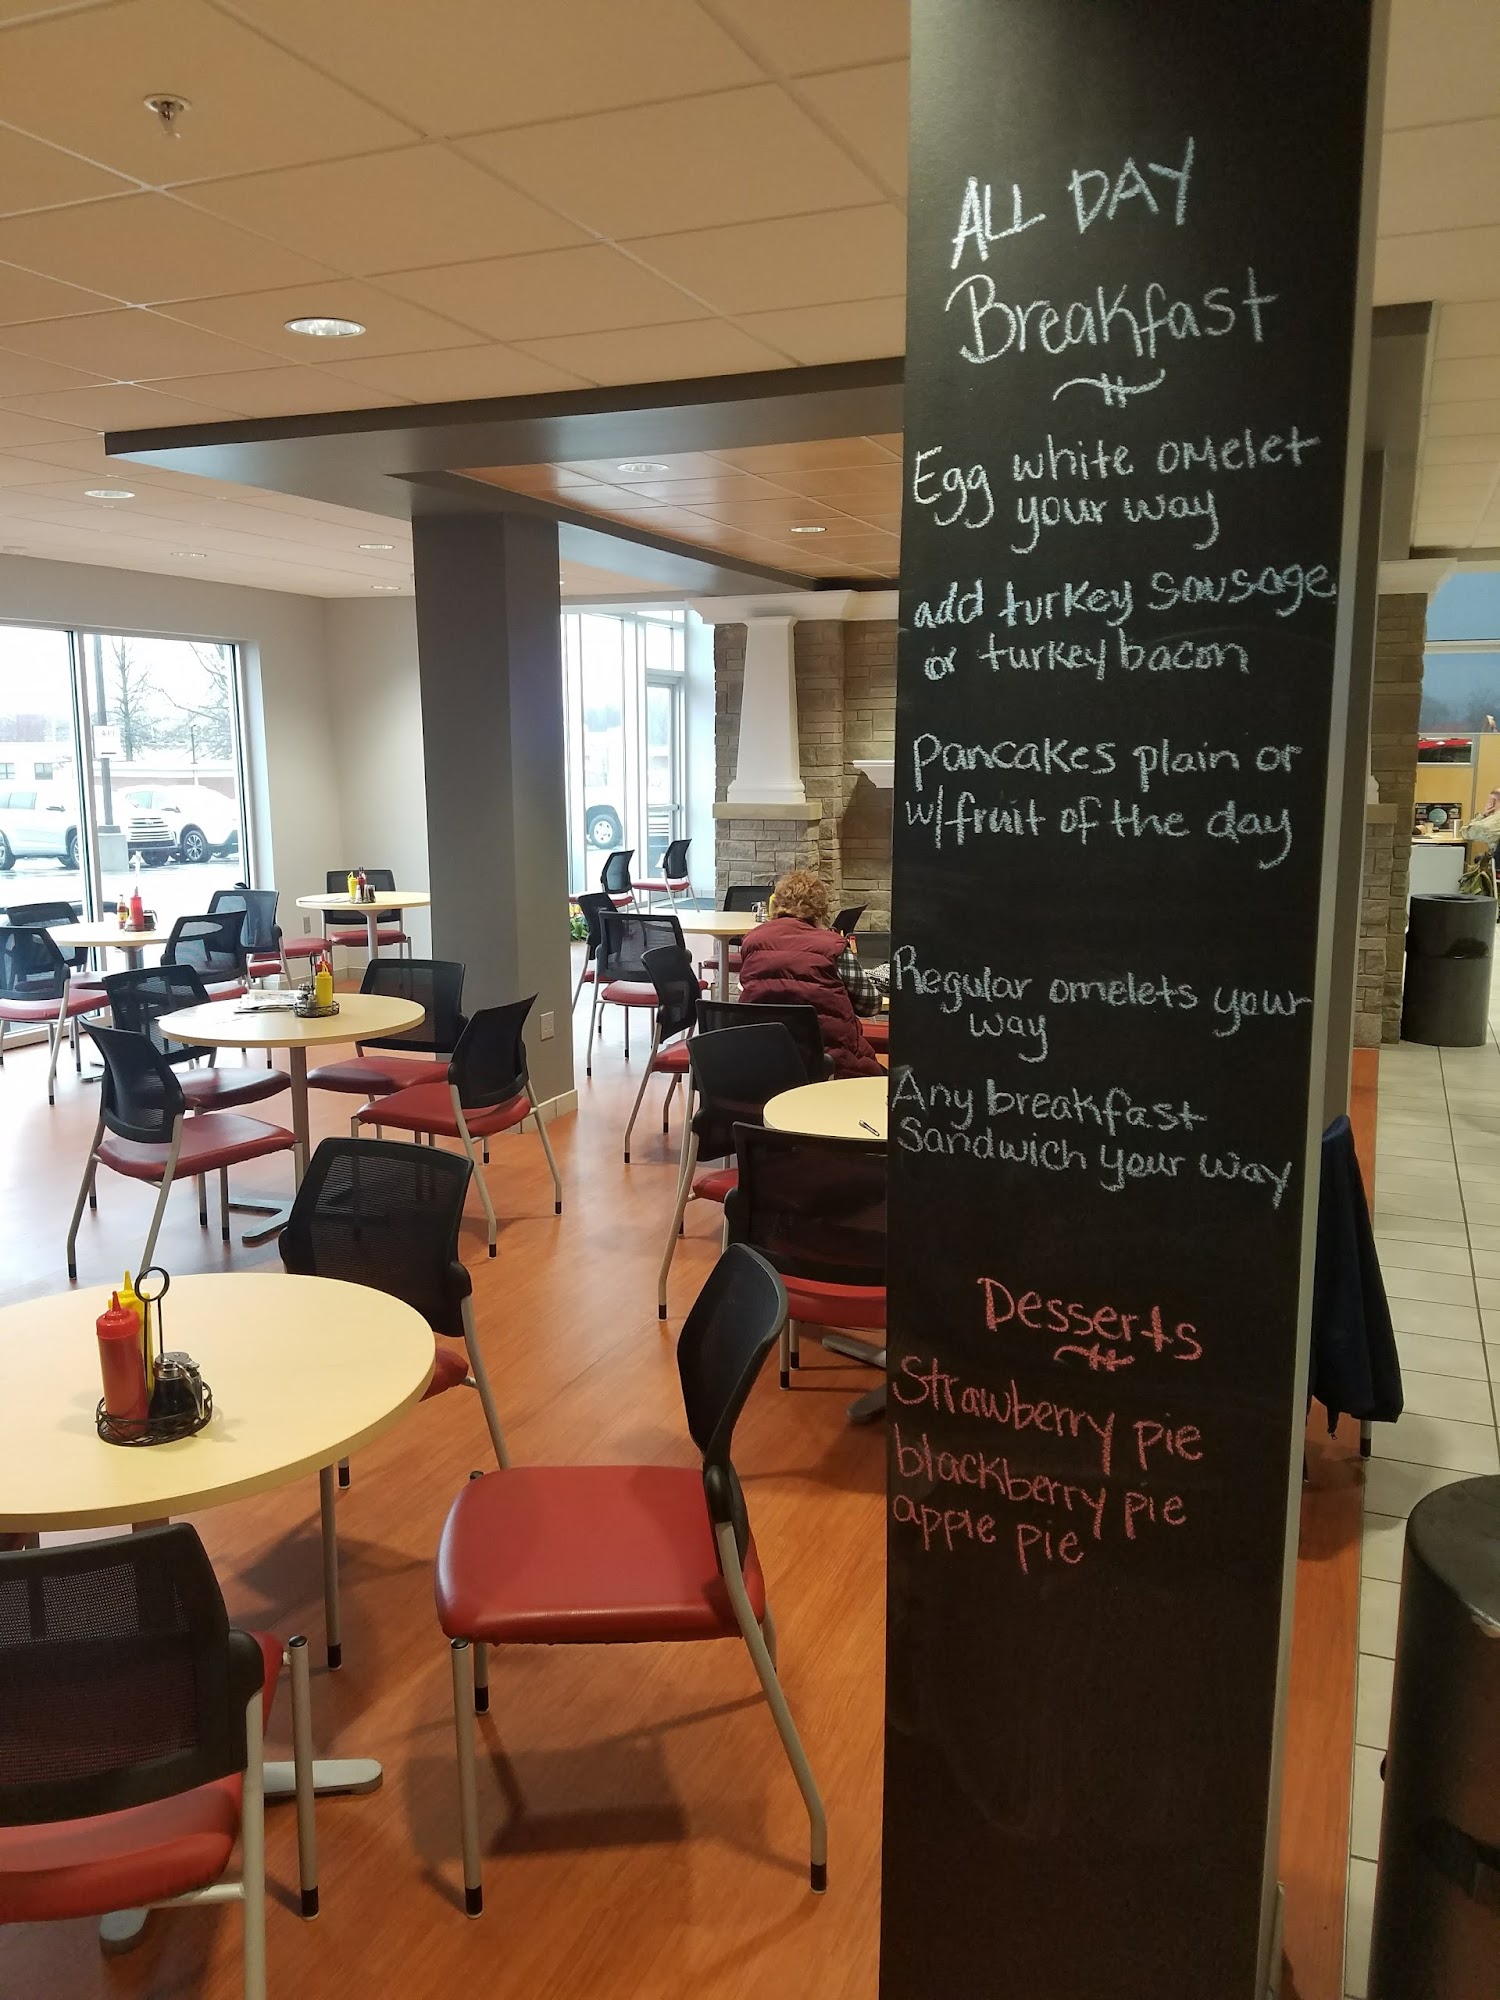 ALL DAY
Breakfast
Egg white omelet
your way
add turkey sausage
or turkey bacon
pancakes plain or
w/fruit of the day
Regular omelets your
way
Any breakfast
Sandwich your way
Desserts
Strawberry pie
blackberry pie
apple pie